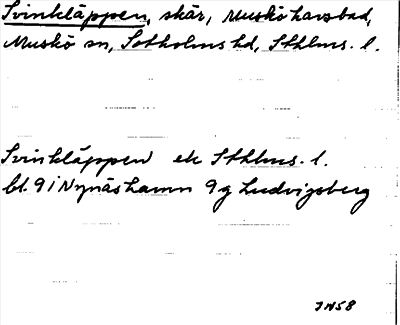 Svinkläppen, skär, Muskö havsbad,
Muskö sn, Sotholms hd, Sthlms. l.
Svinkläppen ek Sthlms. l.
bl. 9 i Nynäshamn 9 g Ludvigsberg
JN58